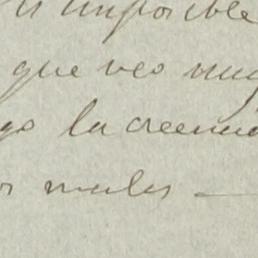 imposible
que veo muy
go la creencia
os males —